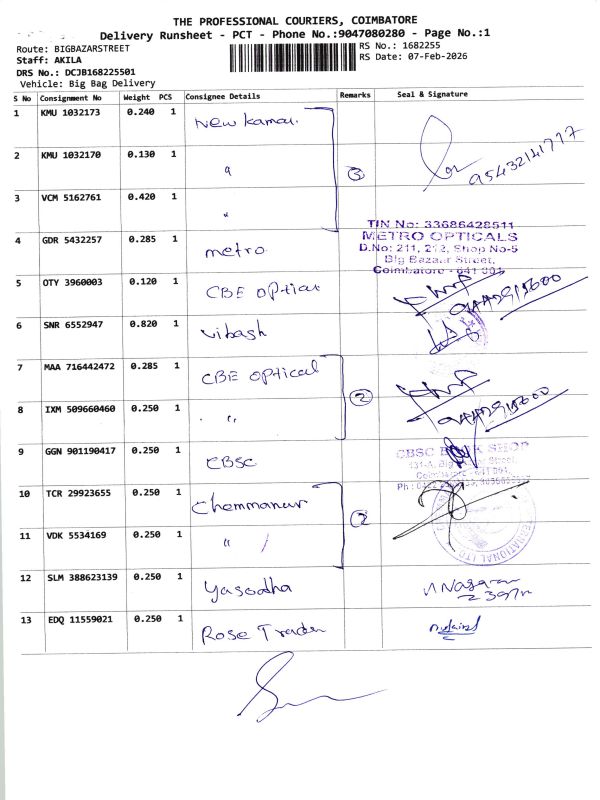 THE PROFESSIONAL COURIERS, COIMBATORE
Delivery Runsheet - PCT - Phone No.:9047080280 - Page No.:1
Route: BIGBAZARSTREET
RS No.: 1682255
Staff: AKILA
RS Date: 07-Feb-2026
DRS No.: DCJB168225501
Vehicle: Big Bag Delivery
S No Consignment No Weight PCS Consignee Details Remarks Seal & Signature
1 KMU 1032173 0.240 1 New Kamal
2 KMU 1032170 0.130 1 " ③ 95432141717
3 VCM 5162761 0.420 1 "
TIN No: 33686428511
METRO OPTICALS
D.No: 211, 212, Shop No-5
Big Bazaar Street,
Coimbatore - 641 001
4 GDR 5432257 0.285 1 metro
5 OTY 3960003 0.120 1 CBE optical
6 SNR 6552947 0.820 1 Vibash
7 MAA 716442472 0.285 1 CBE optical ②
8 IXM 509660460 0.250 1 "
9 GGN 901190417 0.250 1 CBSC
CBSC BOOK SHOP
131-A, Big Bazaar Street,
Coimbatore - 641 001.
10 TCR 29923655 0.250 1 Chemmanur ②
11 VDK 5534169 0.250 1 "
12 SLM 388623139 0.250 1 Yasodha
13 EDQ 11559021 0.250 1 Rose Trader